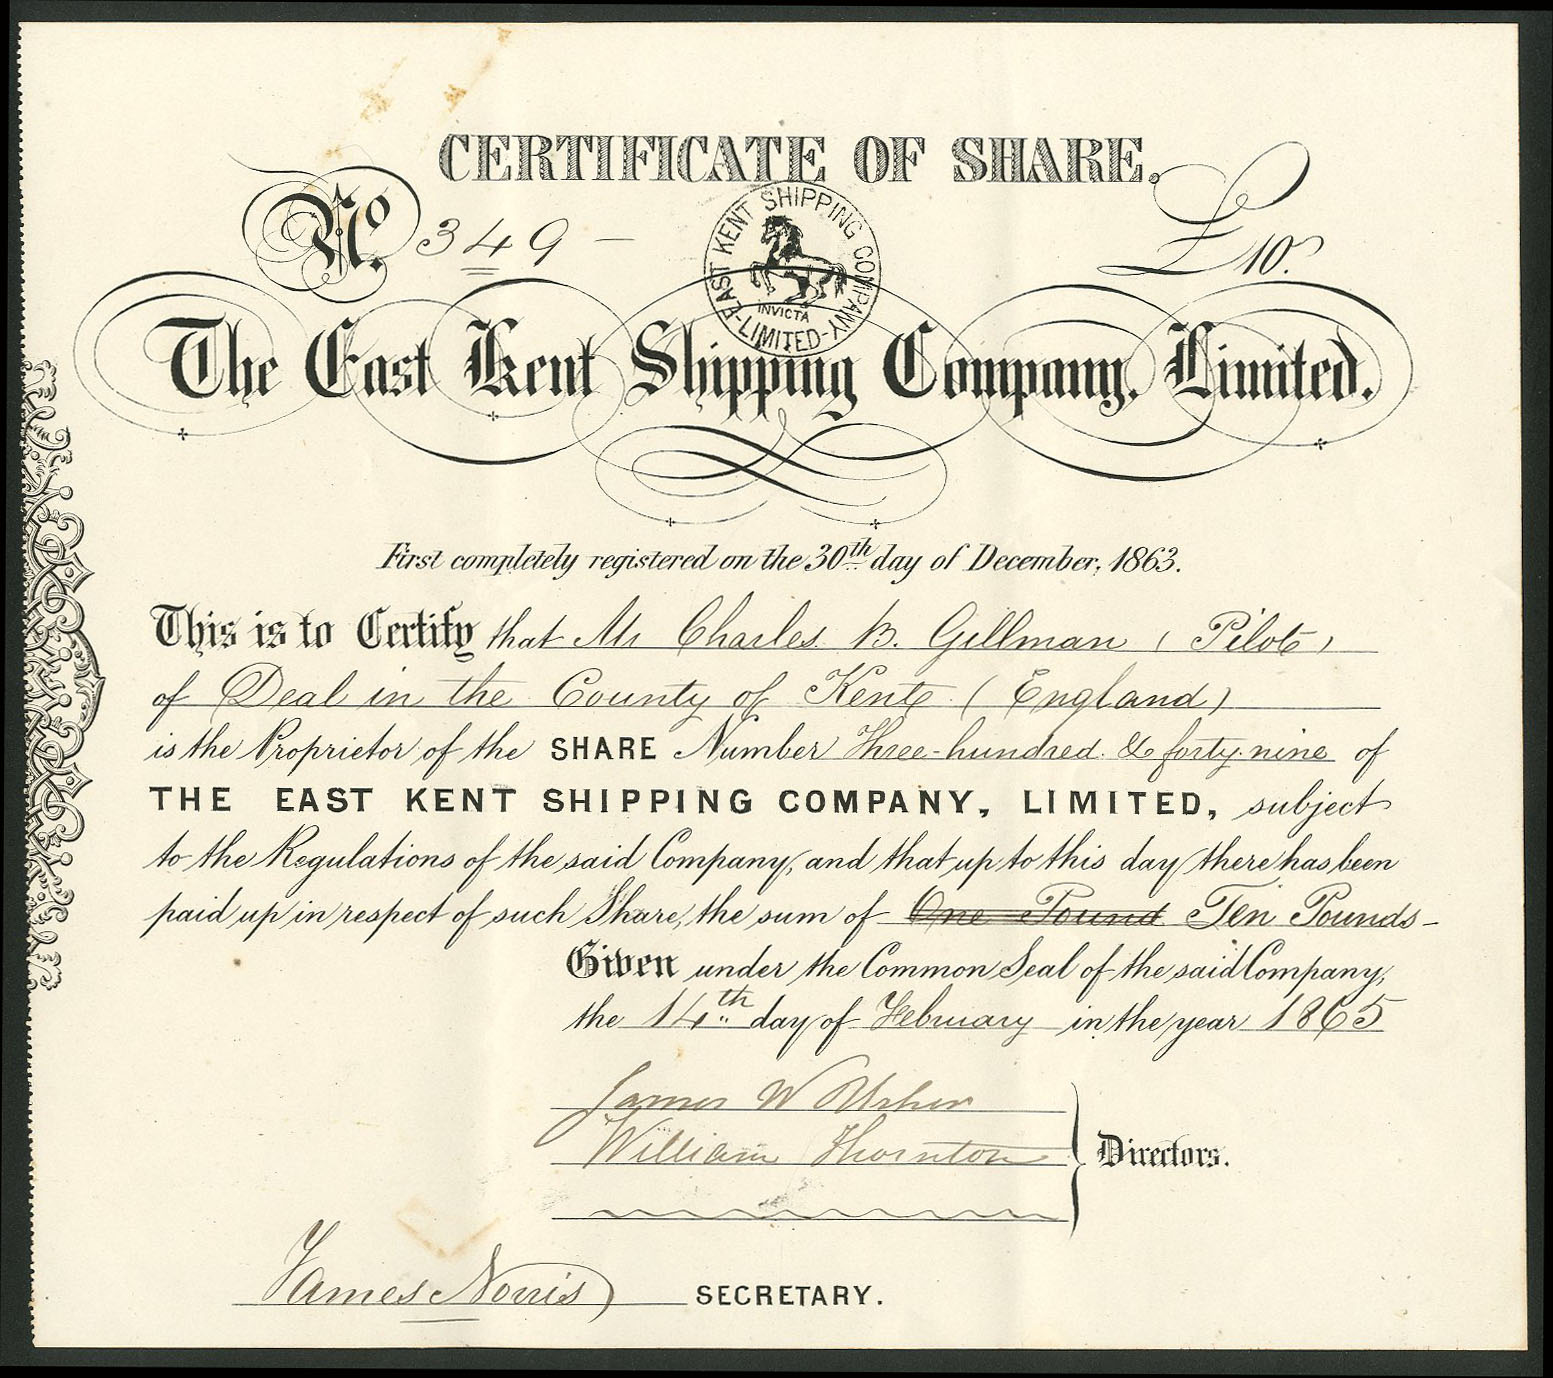 CERTIFICATE OF SHARE.
No. 349 —
EAST KENT SHIPPING COMPANY
-LIMITED-
INVICTA
£10.
The East Kent Shipping Company, Limited.
First completely registered on the 30th day of December, 1863.
This is to Certify that Mr Charles B. Gillman (Pilot)
of Deal in the County of Kent (England)
is the Proprietor of the SHARE Number Three-hundred & forty-nine of
THE EAST KENT SHIPPING COMPANY, LIMITED, subject
to the Regulations of the said Company, and that up to this day there has been
paid up in respect of such Share, the sum of One Pound Ten Pounds-
Given under the Common Seal of the said Company,
the 14th day of February in the year 1865
James W
William Thornton
Directors.
James Norris SECRETARY.